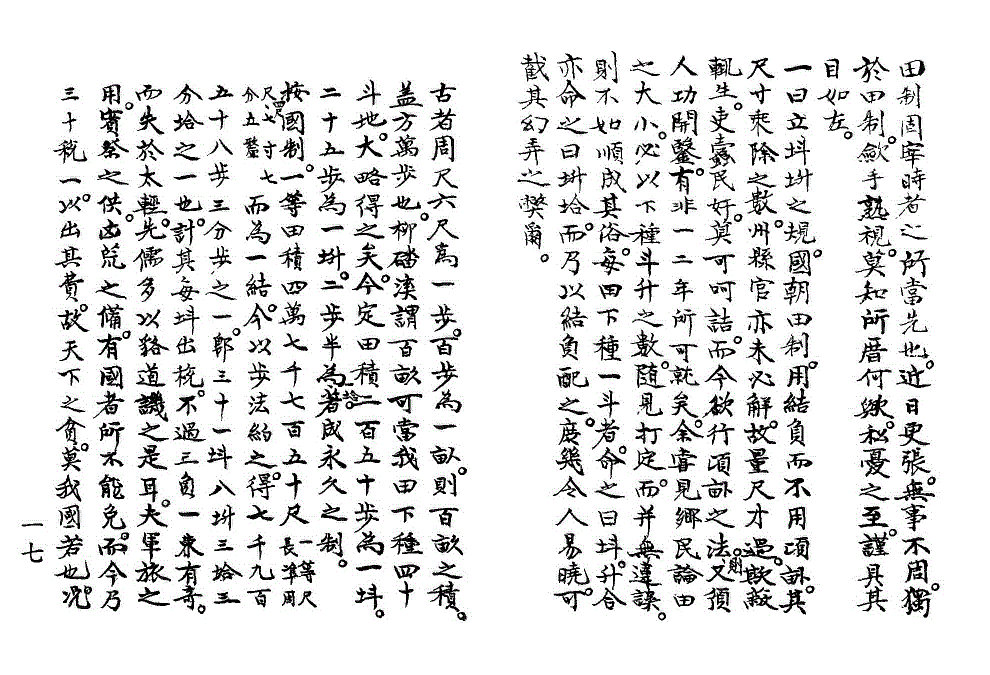 田制固宰時者之所當先也。近日更張。無事不周。獨
於田制。歛手熟視。莫知所厝何歟。私憂之至。謹具其
目如左。
一曰立之規。國朝田制。用結負而不用頃畝。其
尺寸乘除之數。州縣官亦未必解。故量尺才過。欺蔽
輒生。吏蠹民奸。莫可呵詰。而今欲行頃畝之法。則又須
人功開鑿。有非一二年所可就矣。余嘗見鄕民論田
之大小。必以下種斗升之數。随見打定。而并無違誤。
則不如順成其俗。每田下種一斗者。命之曰。升合
亦命之曰垥。而乃以結負配之。庶幾令人易曉。可
截其幻弄之獘爾。
古者周尺六尺爲一步。百步為一畝。則百畝之積。
盖方萬步也。柳磻溪謂百畝可當我田下種四十
斗地。大略得之矣。今定田積二百五十步為一。
二十五步為一。二步半為一垥。著成永久之制。
按國制。一等田積四萬七千七百五十尺一等尺長準周
尺四尺七寸七分五釐而為一結。今以步法約之。得七千九百
五十八步三分步之一。郎三十一八三垥三
分垥之一也。計其每出稅。不過三負一束有奇。
而失於太輕。先儒多以貉道譏之是耳。夫軍旅之
用。賓祭之供。凶荒之備。有國者所不能免。而今乃
三十稅一。以出其費。故天下之貧。莫我國若也。況
一七